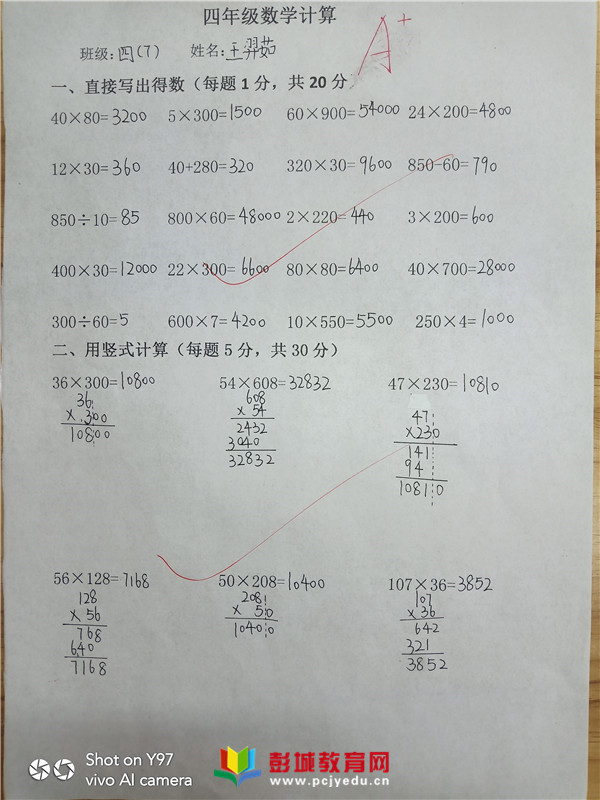 四年级数学计算
A+
班级:四(7) 姓名:王羿茹
一、直接写出得数（每题1分，共20分
40×80=3200 5×300=1500 60×900=54000 24×200=4800
12×30=360 40+280=320 320×30=9600 850-60=790
850÷10=85 800×60=48000 2×220=440 3×200=600
400×30=12000 22×300=6600 80×80=6400 40×700=28000
300÷60=5 600×7=4200 10×550=5500 250×4=1000
二、用竖式计算（每题5分，共30分）
36×300=10800 54×608=32832 47×230=10810
36 608 47
×300 ×54 ×230
10800 2432 141
3040 94
32832 10810
56×128=7168 50×208=10400 107×36=3852
128 208 107
×56 ×50 ×36
768 10400 642
640 321
7168 3852
Shot on Y97
vivo AI camera
彭城教育网
www.pcjyedu.cn